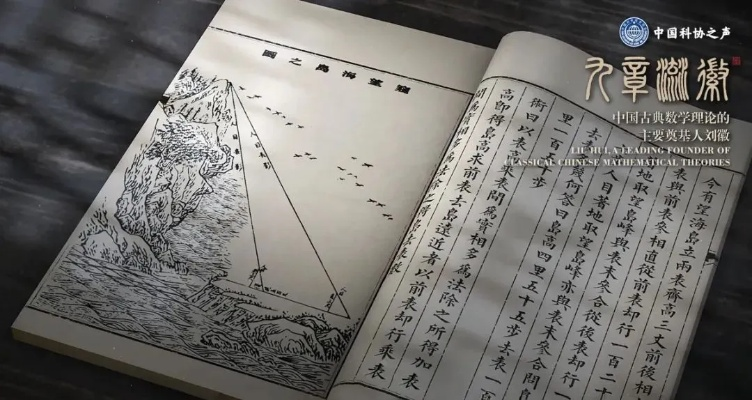 中国科协之声
九章流徽
中国古典数学理论的
主要奠基人刘徽
LIU HUI, A LEADING FOUNDER OF
CLASSICAL CHINESE MATHEMATICAL THEORIES
窺望海島之圖
今有望海島立兩表齊高三丈前後相
表與前表參相直從前表却行一百二十
地取望島峰與表末參合從後表却行一
人目著地取望島峰亦與表末參合問島
去幾何荅曰島高四里五十五步去表一
里一百五十步
術曰以表高乘表間爲實相多爲法除之所得加表
高即得島高求前表去島遠近者以前表却行乘表
間爲實相多爲法除之得島去表